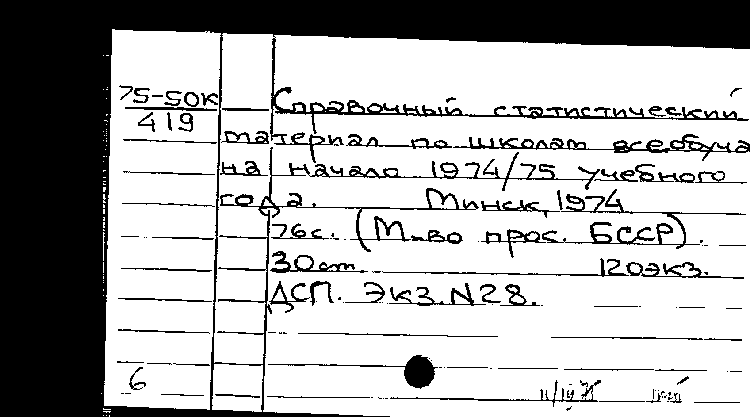 75-50К
419
Справочный статистический
материал по школам всеобуча
на начало 1974/75 учебного
года. Минск, 1974
76с. (М-во прос. БССР).
30см. 120экз.
ДСП. Экз.N28.
6